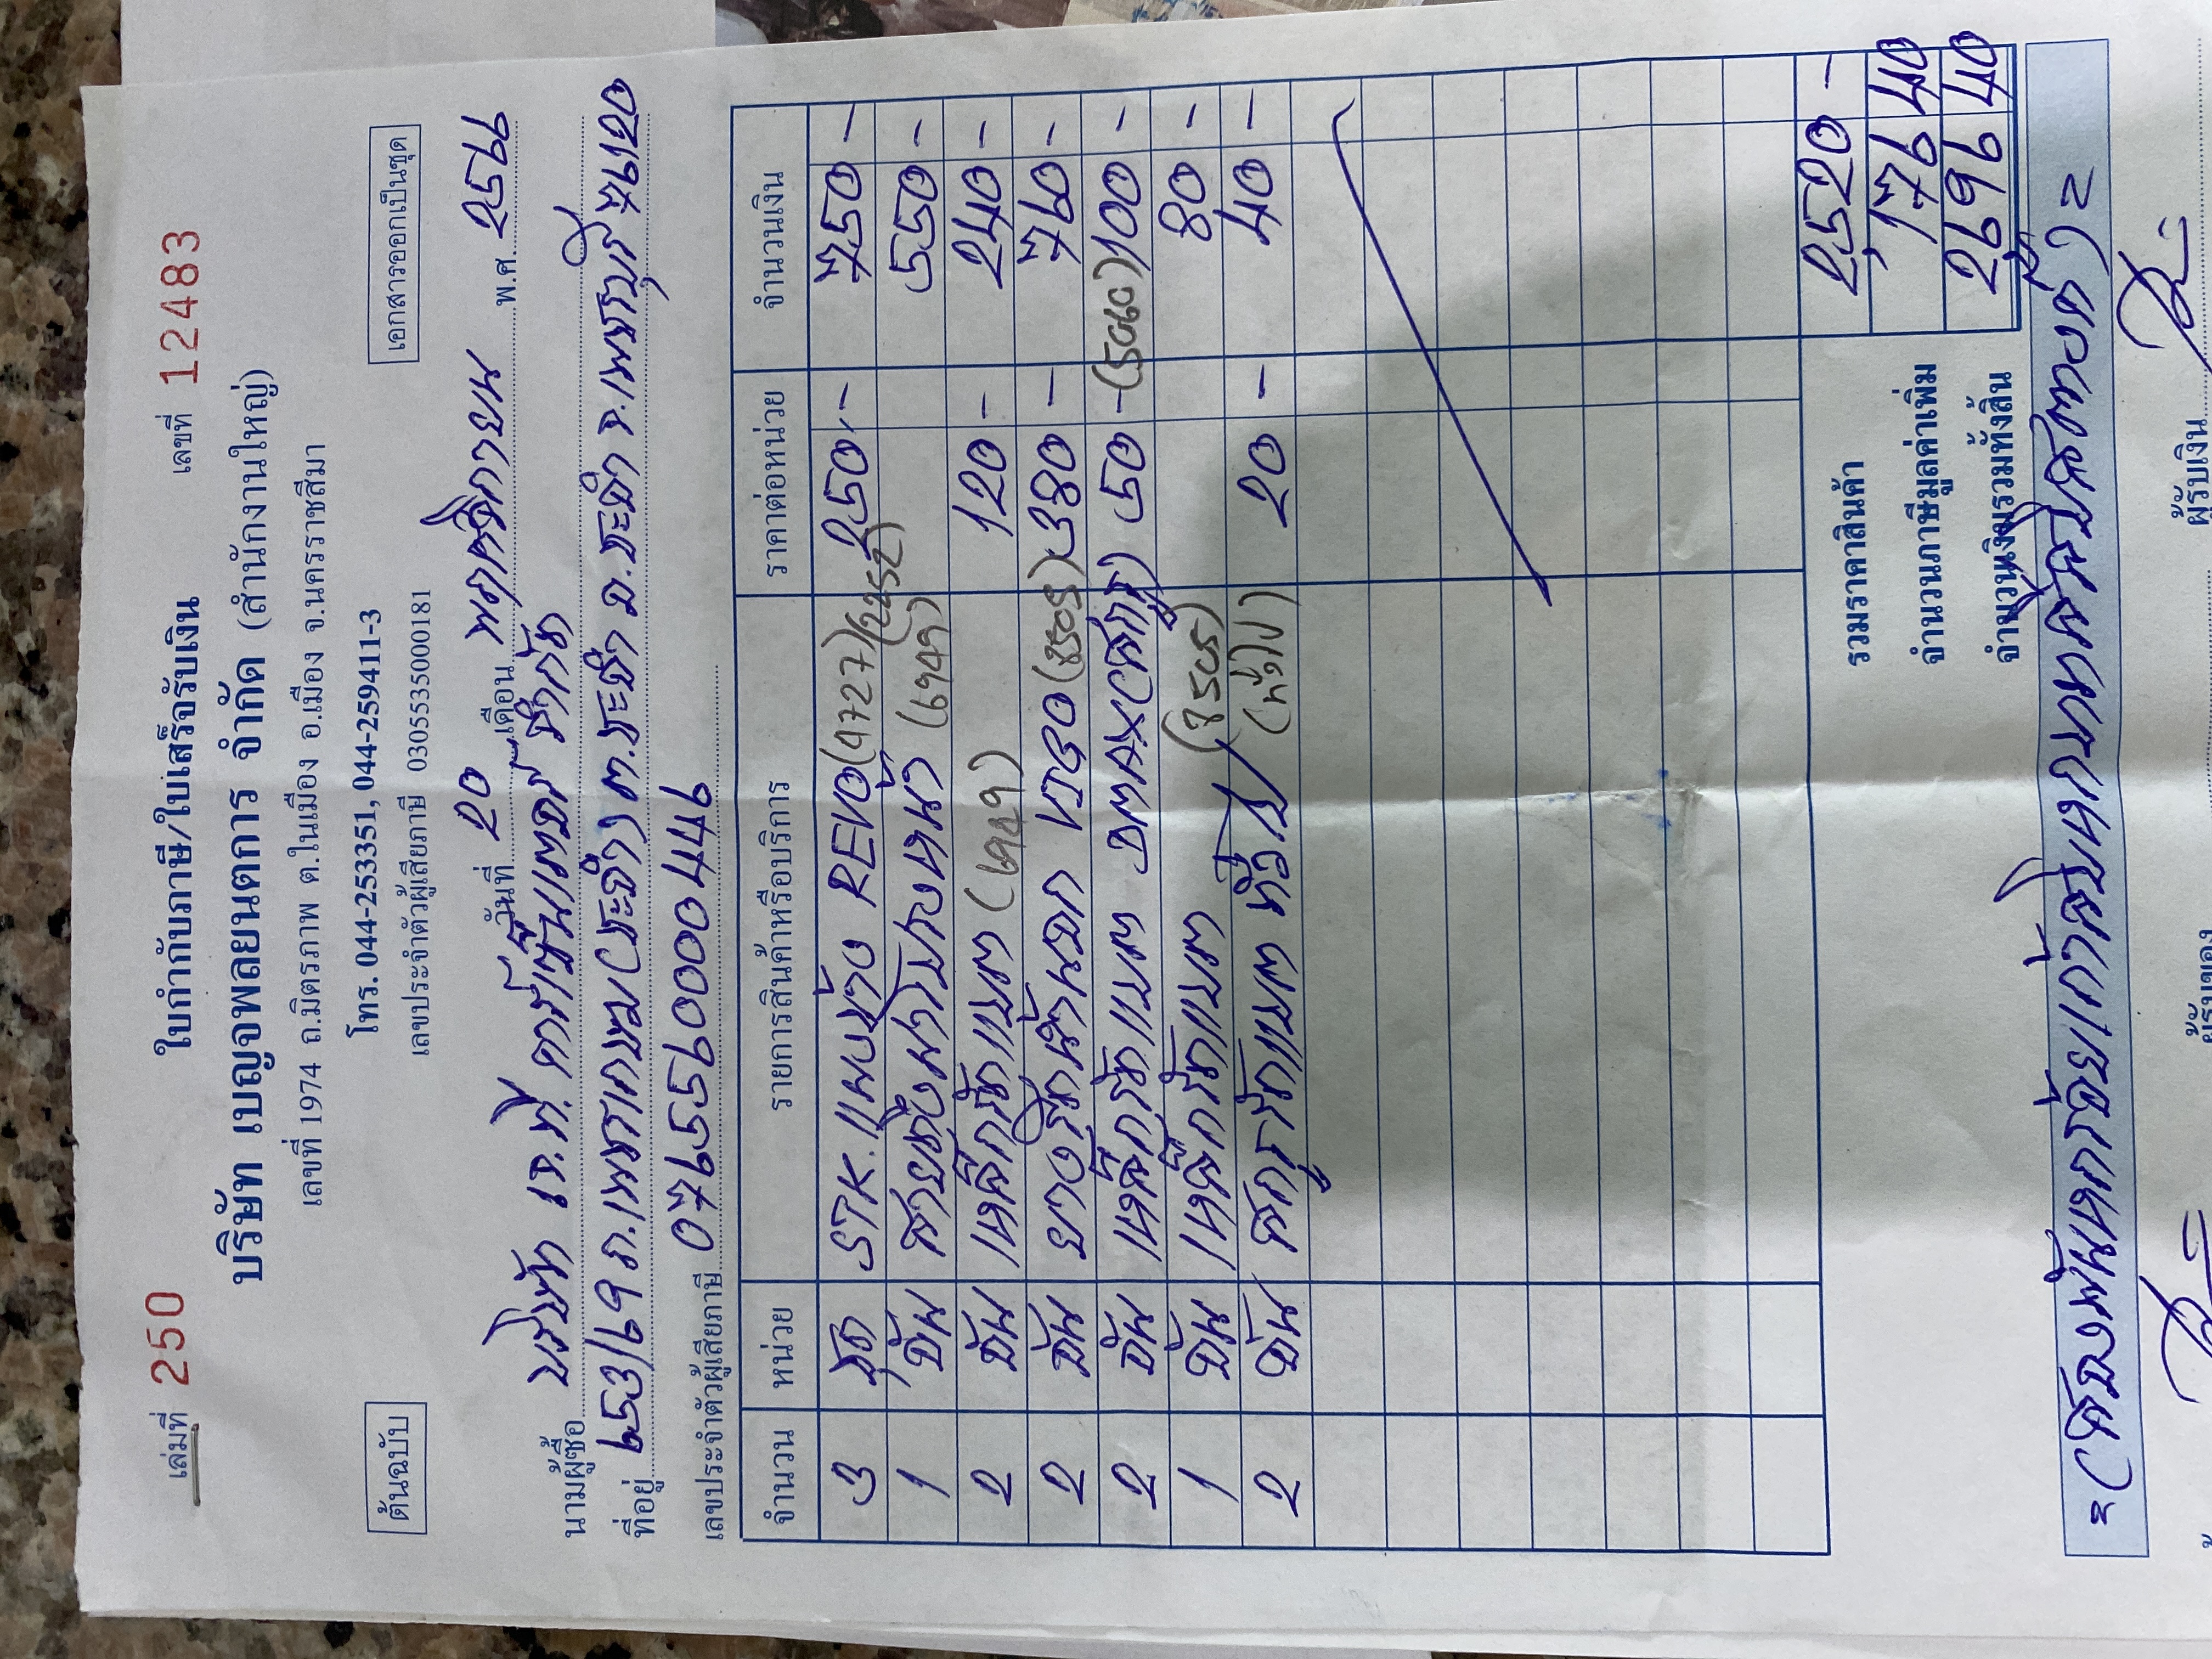 เล่มที่ 250 ใบกำกับภาษี/ใบเสร็จรับเงิน เลขที่ 12483
บริษัท เบญจพลยนตการ จำกัด (สำนักงานใหญ่)
เลขที่ 1974 ถ.มิตรภาพ ต.ในเมือง อ.เมือง จ.นครราชสีมา
ต้นฉบับ โทร. 044-253351, 044-259411-3 เอกสารออกเป็นชุด
เลขประจำตัวผู้เสียภาษี 0305535000181
วันที่ 20 เดือน พฤศจิกายน พ.ศ. 2567
นามผู้ซื้อ บริษัท เจ.ที. จำกัด
ที่อยู่ 153/69 ถ.เพชรเกษม ต.ชะอำ อ.ชะอำ จ.เพชรบุรี 76120
เลขประจำตัวผู้เสียภาษี 0765560000446
จำนวน หน่วย รายการสินค้าหรือบริการ ราคาต่อหน่วย จำนวนเงิน
3 ชุด STK. REVO (4727) 250 - 750 -
1 อัน (6949) 550 -
2 อัน เหล็กรัดแหนบ (6949) 120 - 240 -
2 อัน (8505) 380 - 760 -
2 อัน เหล็กรัดแหนบ DMAX 50 - (5060) 100 -
1 อัน เหล็กรัดแหนบ (8505) 80 -
2 อัน สกรูรัดแหนบ (ทั่วไป) 20 - 40 -
รวมราคาสินค้า 2,520 -
จำนวนภาษีมูลค่าเพิ่ม 176 40
จำนวนเงินรวมทั้งสิ้น 2696 40
=(สองพันหกร้อยเก้าสิบหกบาทสี่สิบสตางค์)=
ผู้รับของ ผู้รับเงิน